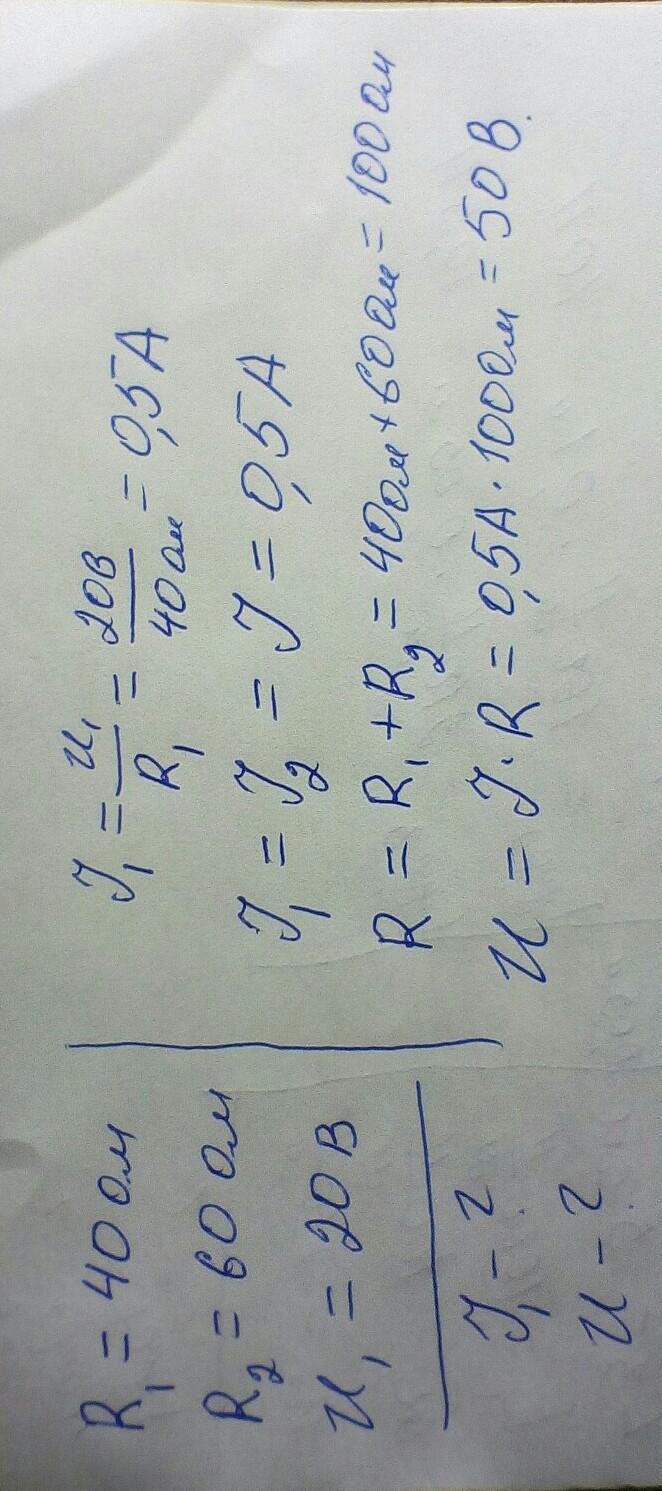 R₁ = 40 Ом
R₂ = 60 Ом
U₁ = 20 В
J₁ - ?
U - ?
J₁ = U₁/R₁ = 20В/40 Ом = 0,5 А
J₁ = J₂ = J = 0,5 А
R = R₁ + R₂ = 40 Ом + 60 Ом = 100 Ом
U = J · R = 0,5 А · 100 Ом = 50 В.